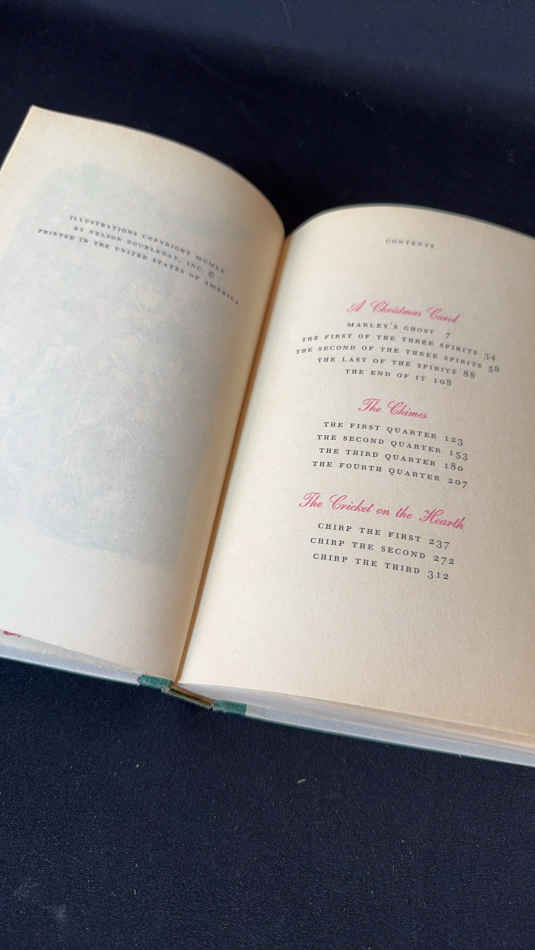 ILLUSTRATIONS COPYRIGHT MCMLX
BY NELSON DOUBLEDAY, INC. ©
PRINTED IN THE UNITED STATES OF AMERICA
CONTENTS
A Christmas Carol
MARLEY'S GHOST 7
THE FIRST OF THE THREE SPIRITS 34
THE SECOND OF THE THREE SPIRITS 58
THE LAST OF THE SPIRITS 88
THE END OF IT 108
The Chimes
THE FIRST QUARTER 123
THE SECOND QUARTER 153
THE THIRD QUARTER 180
THE FOURTH QUARTER 207
The Cricket on the Hearth
CHIRP THE FIRST 237
CHIRP THE SECOND 272
CHIRP THE THIRD 312